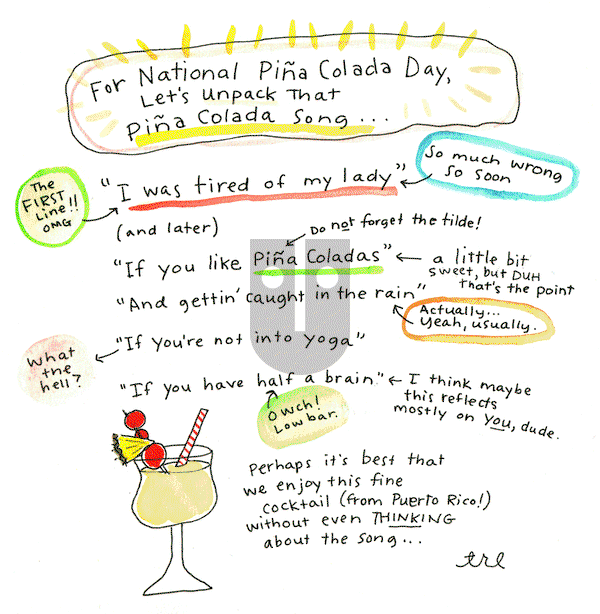 For National Piña Colada Day,
Let's Unpack That
Piña Colada Song...
The
FIRST
Line!!
OMG
"I was tired of my lady"
So much wrong
so soon
(and later)
Do not forget the tilde!
"If you like Piña Coladas"
a little bit
sweet, but DUH
that's the point
"And gettin' caught in the rain"
Actually...
yeah, usually.
What
the
hell?
"If you're not into yoga"
"If you have half a brain"
I think maybe
this reflects
mostly on you, dude.
Owch!
Low bar.
Perhaps it's best that
we enjoy this fine
cocktail (from Puerto Rico!)
without even THINKING
about the song...
trl